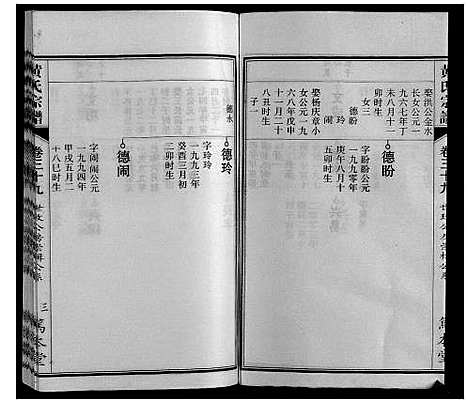 黄氏宗譜
卷三十九
篤本堂
娶洪公金水
长女公元一
九六七年丁
未八月十一
卯时生
女三
德盼
玲
闹
德盼
字盼盼公元
一九九零年
庚午八月十
五卯时生
娶杨庆章小
女公元一九
六八年戊申
十一月二十
八丑时生
子一
德水
德玲
字玲玲
一九九三年
癸酉三月初
二卯时生
德闹
字闹闹公元
一九九四年
甲戌五月二
十八巳时生
黄氏宗譜
卷三十九
三
篤本堂